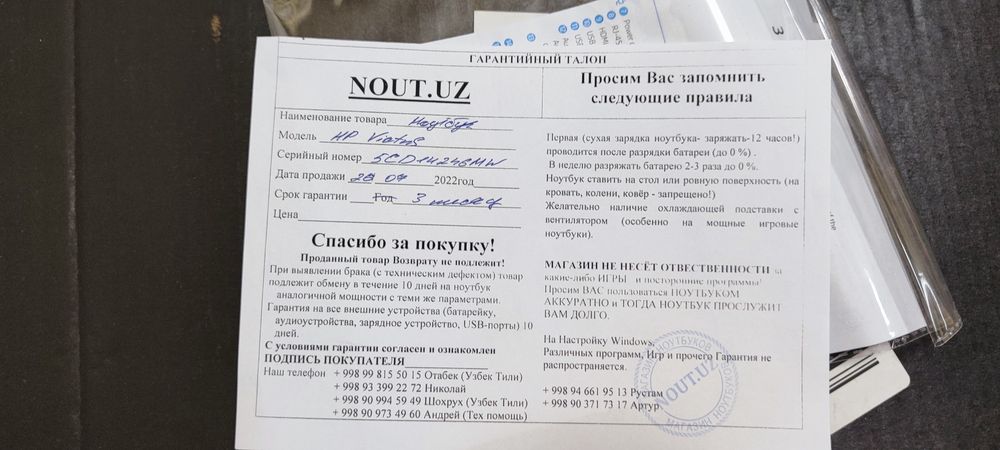 ГАРАНТИЙНЫЙ ТАЛОН
NOUT.UZ
Наименование товара Ноутбук
Модель HP Victus
Серийный номер 5CD14246MW
Дата продажи 28 07 2022год
Срок гарантии Год 3 месяц
Цена
Спасибо за покупку!
Проданный товар Возврату не подлежит!
При выявлении брака (с техническим дефектом) товар
подлежит обмену в течение 10 дней на ноутбук
аналогичной мощности с теми же параметрами.
Гарантия на все внешние устройства (батарейку,
аудиоустройства, зарядное устройство, USB-порты) 10
дней.
С условиями гарантии согласен и ознакомлен
ПОДПИСЬ ПОКУПАТЕЛЯ
Наш телефон + 998 99 815 50 15 Отабек (Узбек Тили)
+ 998 93 399 22 72 Николай
+ 998 90 994 59 49 Шохрух (Узбек Тили)
+ 998 90 973 49 60 Андрей (Тех помощь)
Просим Вас запомнить
следующие правила
Первая (сухая зарядка ноутбука- заряжать-12 часов!)
проводится после разрядки батареи (до 0 %) .
В неделю разряжать батарею 2-3 раза до 0 %.
Ноутбук ставить на стол или ровную поверхность (на
кровать, колени, ковёр - запрещено!)
Желательно наличие охлаждающей подставки с
вентилятором (особенно на мощные игровые
ноутбуки).
МАГАЗИН НЕ НЕСЁТ ОТВЕСТВЕННОСТИ за
какие-либо ИГРЫ и посторонние программы!
Просим ВАС пользоваться НОУТБУКОМ
АККУРАТНО и ТОГДА НОУТБУК ПРОСЛУЖИТ
ВАМ ДОЛГО.
На Настройку Windows,
Различных программ, Игр и прочего Гарантия не
распространяется.
+ 998 94 661 95 13 Рустам
+ 998 90 371 73 17 Артур
МАГАЗИН НОУТБУКОВ
NOUT.UZ
Power
RJ-45
HDMI
USB
USB
3